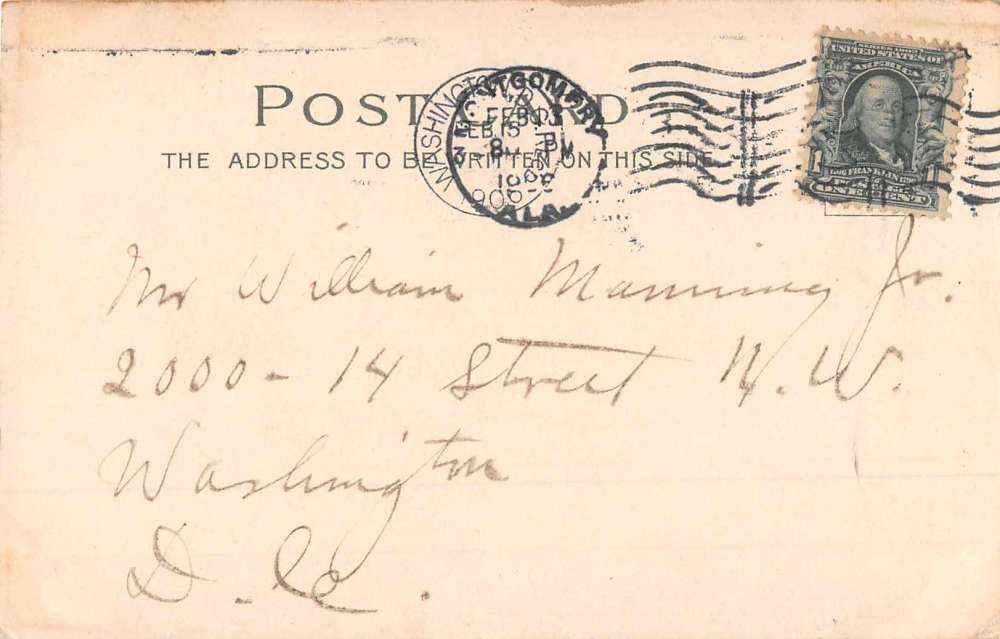 POST
THE ADDRESS TO BE WRITTEN ON THIS SIDE
MONTGOMERY
ALA.
WASHINGTON
FEB 13
8 PM
1906
SERIES 1902
UNITED STATES OF
AMERICA
1790 FRANKLIN
POSTAGE
ONE CENT
Mr William Manning Jr.
2000 - 14 Street N.W.
Washington
D.C.